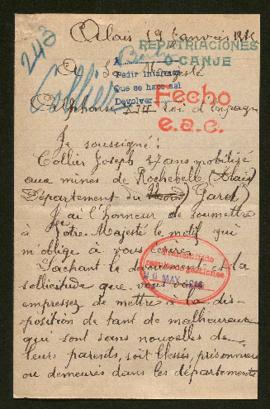 243
Alais 19 Janvier 1916
REPATRIACIONES
O CANJE
A Sa Majesté
Pedir informes
Que se hace así
Devolver
Collier
Fecho
e.a.c.
Alphonse XIII Roi d'Espagne
Je soussigné:
Collier Joseph ans mobilisé
aux mines de Rochebelle (Alais)
Département du Gard)
J'ai l'honneur de soumettre
à Votre Majesté le motif qui
m'oblige à vous écrire.
Sachant le dévouement et la
sollicitude que vous vous
empressez de mettre à la dis-
position de tant de malheureux
qui sont sans nouvelles de
leurs parents, soit blessés, prisonniers
ou demeurés dans les départements
MAY